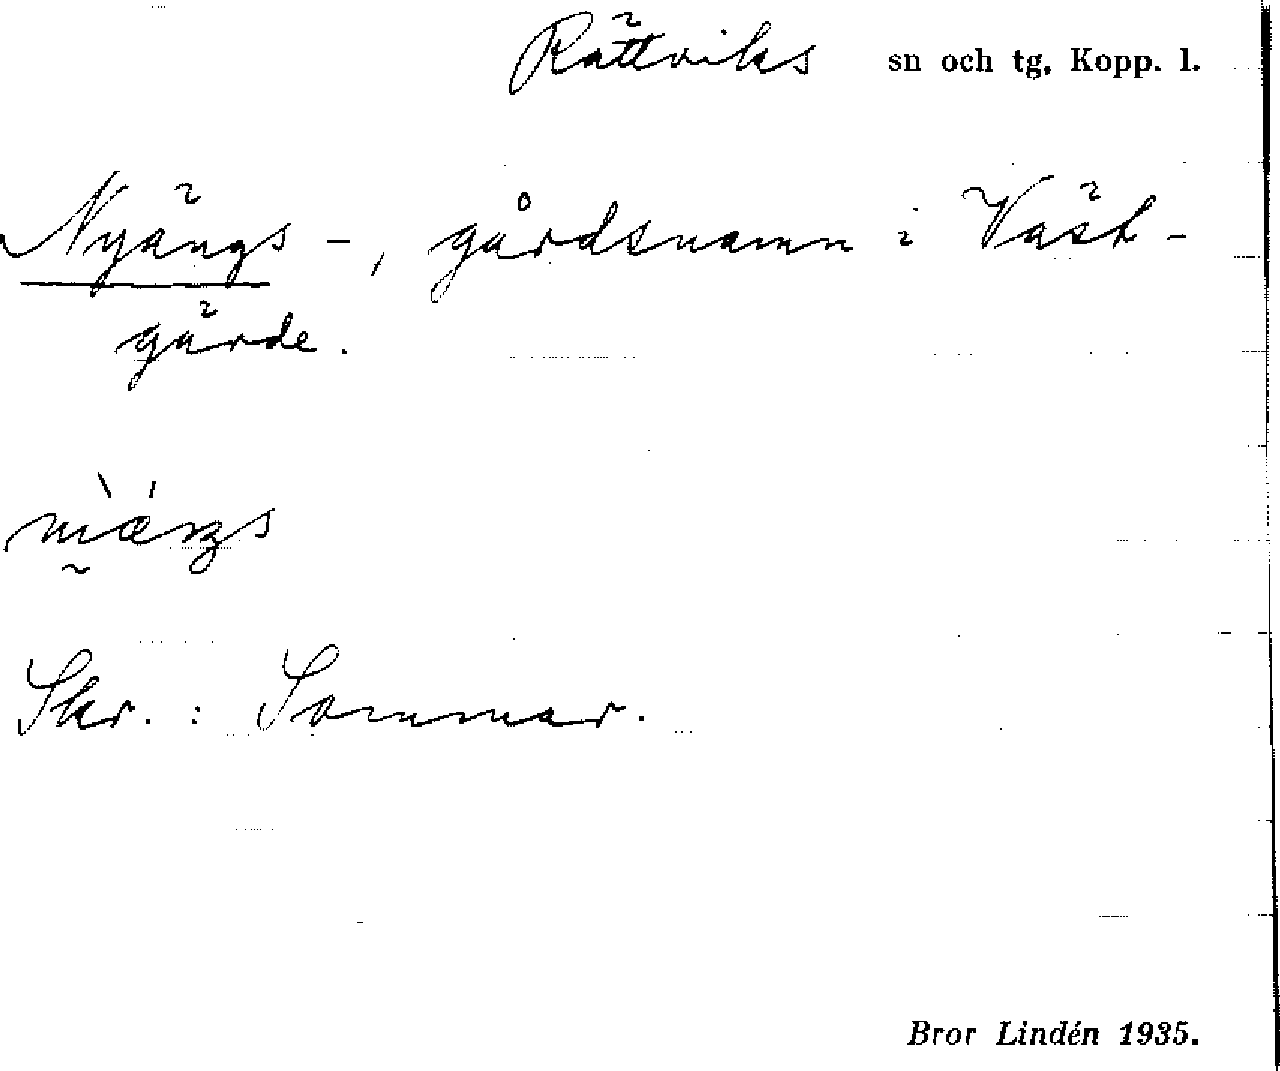 Rättviks sn och tg. Kopp. l.
Nyängs -, gårdsnamn i Väst-
gärde.
Skr. : Sommar.
Bror Lindén 1935.